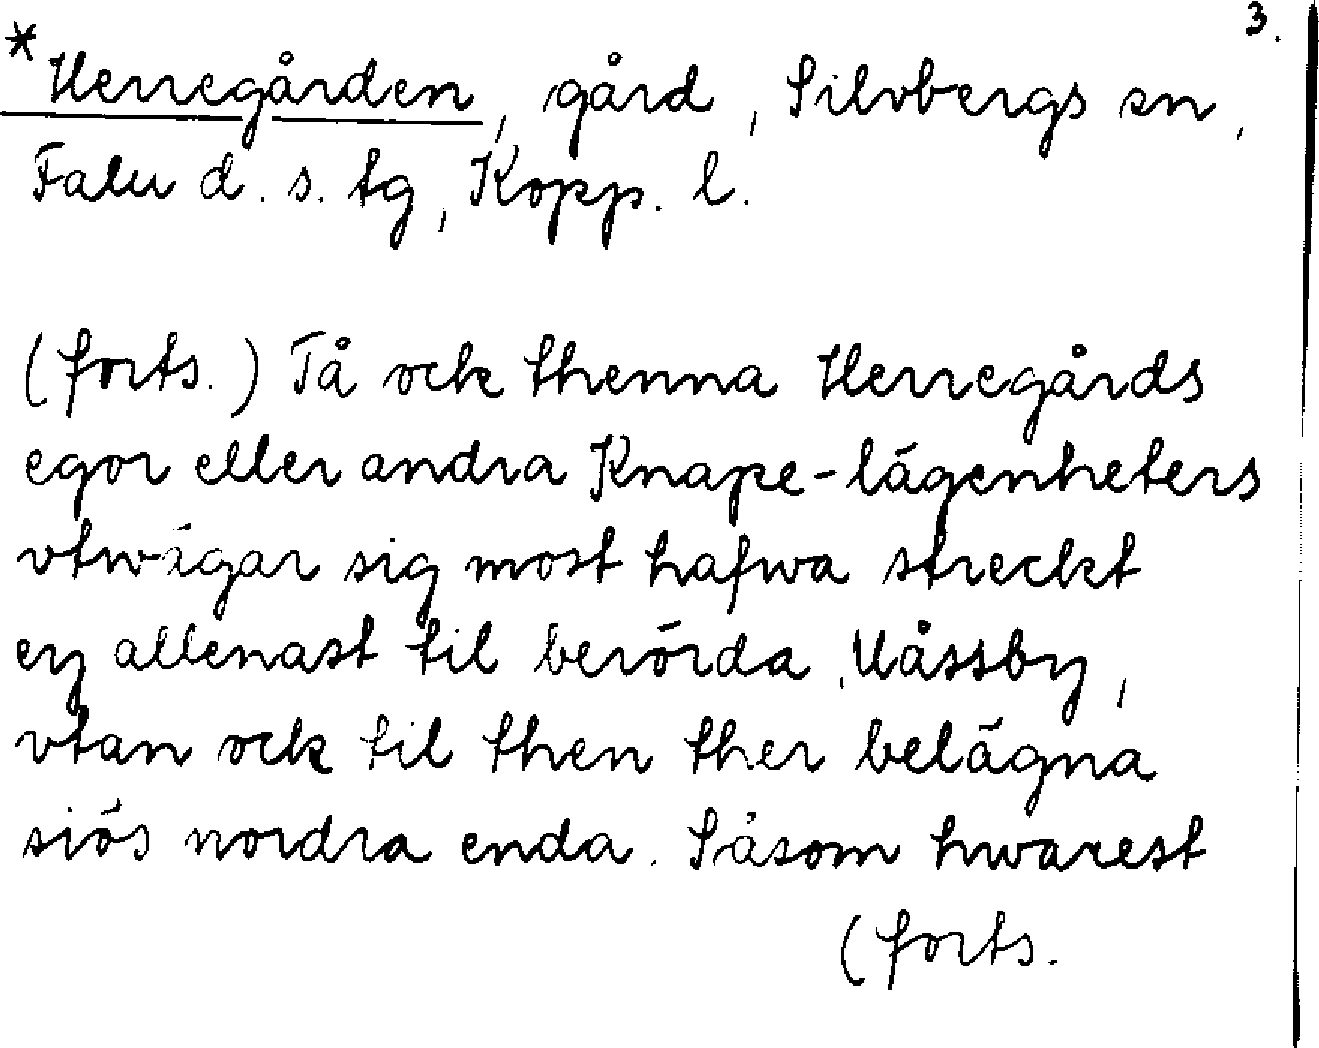 3.
*Herregården, gård, Silvbergs sn,
Falu d. s. tg, Kopp. l.
(forts.) Tå ock thenna Herregårds
egor eller andra Knape-lägenheters
vtwägar sig most hafwa streckt
ey allenast til berörda Uåssby,
vtan ock til then ther belägna
siös nordra enda. Såsom hwarest
(forts.